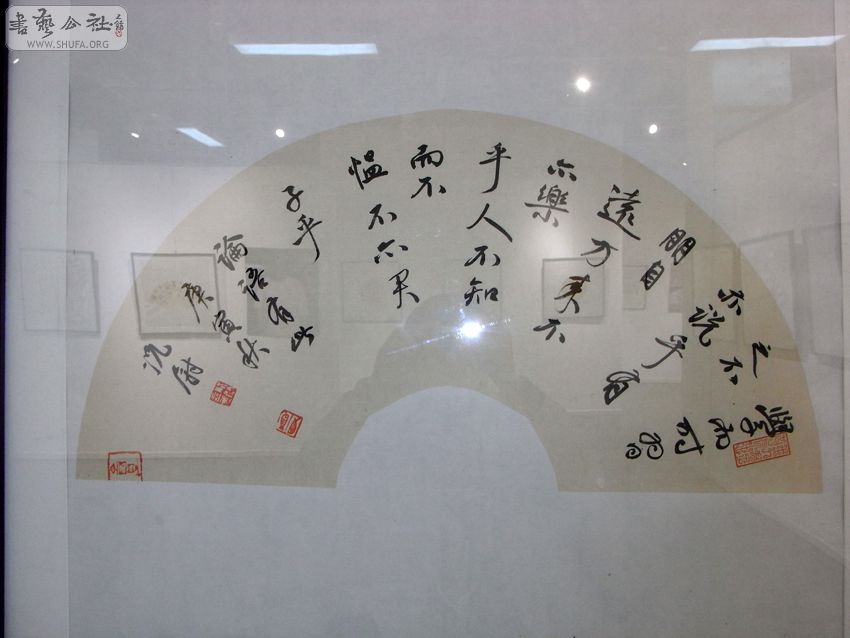 書藝公社
WWW.SHUFA.ORG
學而时習
之不
亦说乎有
朋自
遠方来不
亦樂
乎人不知
而不
愠不亦君
子乎
論語有此
庚寅秋
沈